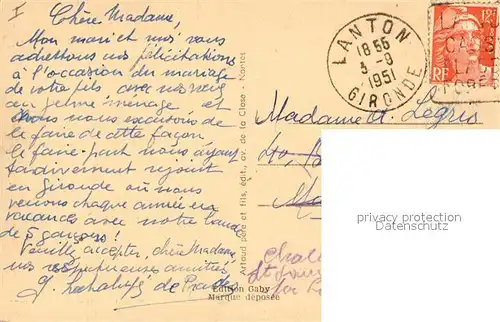 I
Chère Madame,
Mon mari et moi vous
adressons nos félicitations
à l'occasion du mariage
de votre fils avec nos vœux
au jeune ménage et
nous nous excusons de
le faire de cette façon
le faire-part nous ayant
tardivement rejoint
en Gironde où nous
venons chaque année en
vacances avec notre bande
de 5 garçons!
Veuillez accepter, chère Madame,
nos respectueuses amitiés,
Artaud père et fils, édit., av. de la Close - Nantes
Edition Gaby
Marque déposée
LANTON
18 55
3 - 8
1951
GIRONDE
12F
RF
Madame A. Legris
privacy protection
Datenschutz